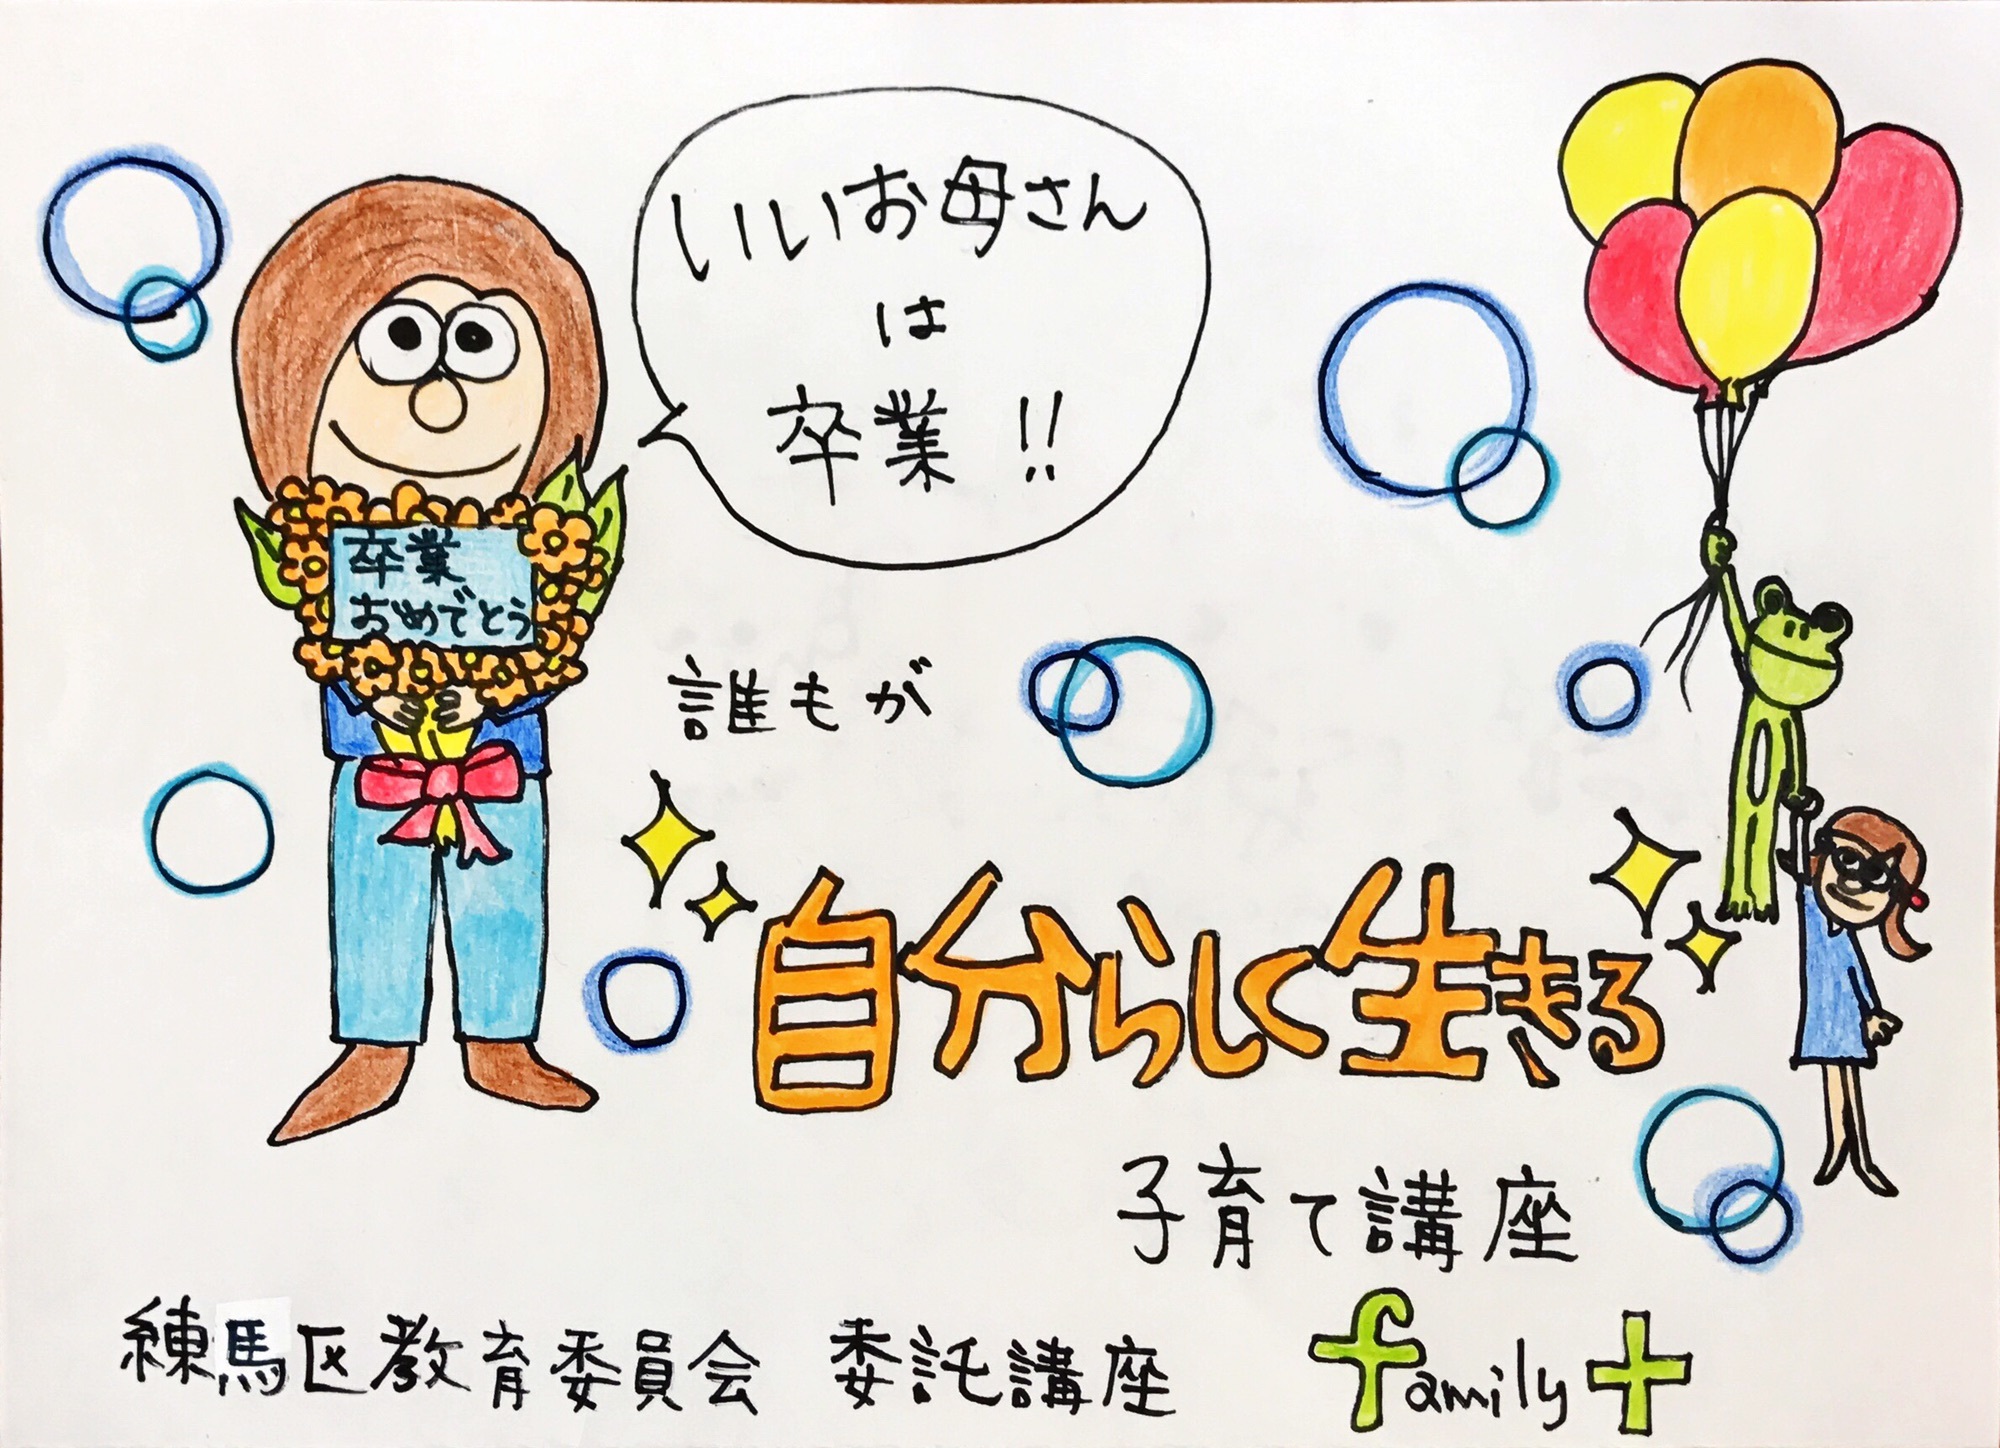 いいお母さん
は
卒業!!
卒業
おめでとう
誰もが
自分らしく生きる
子育て講座
練馬区教育委員会 委託講座 family+